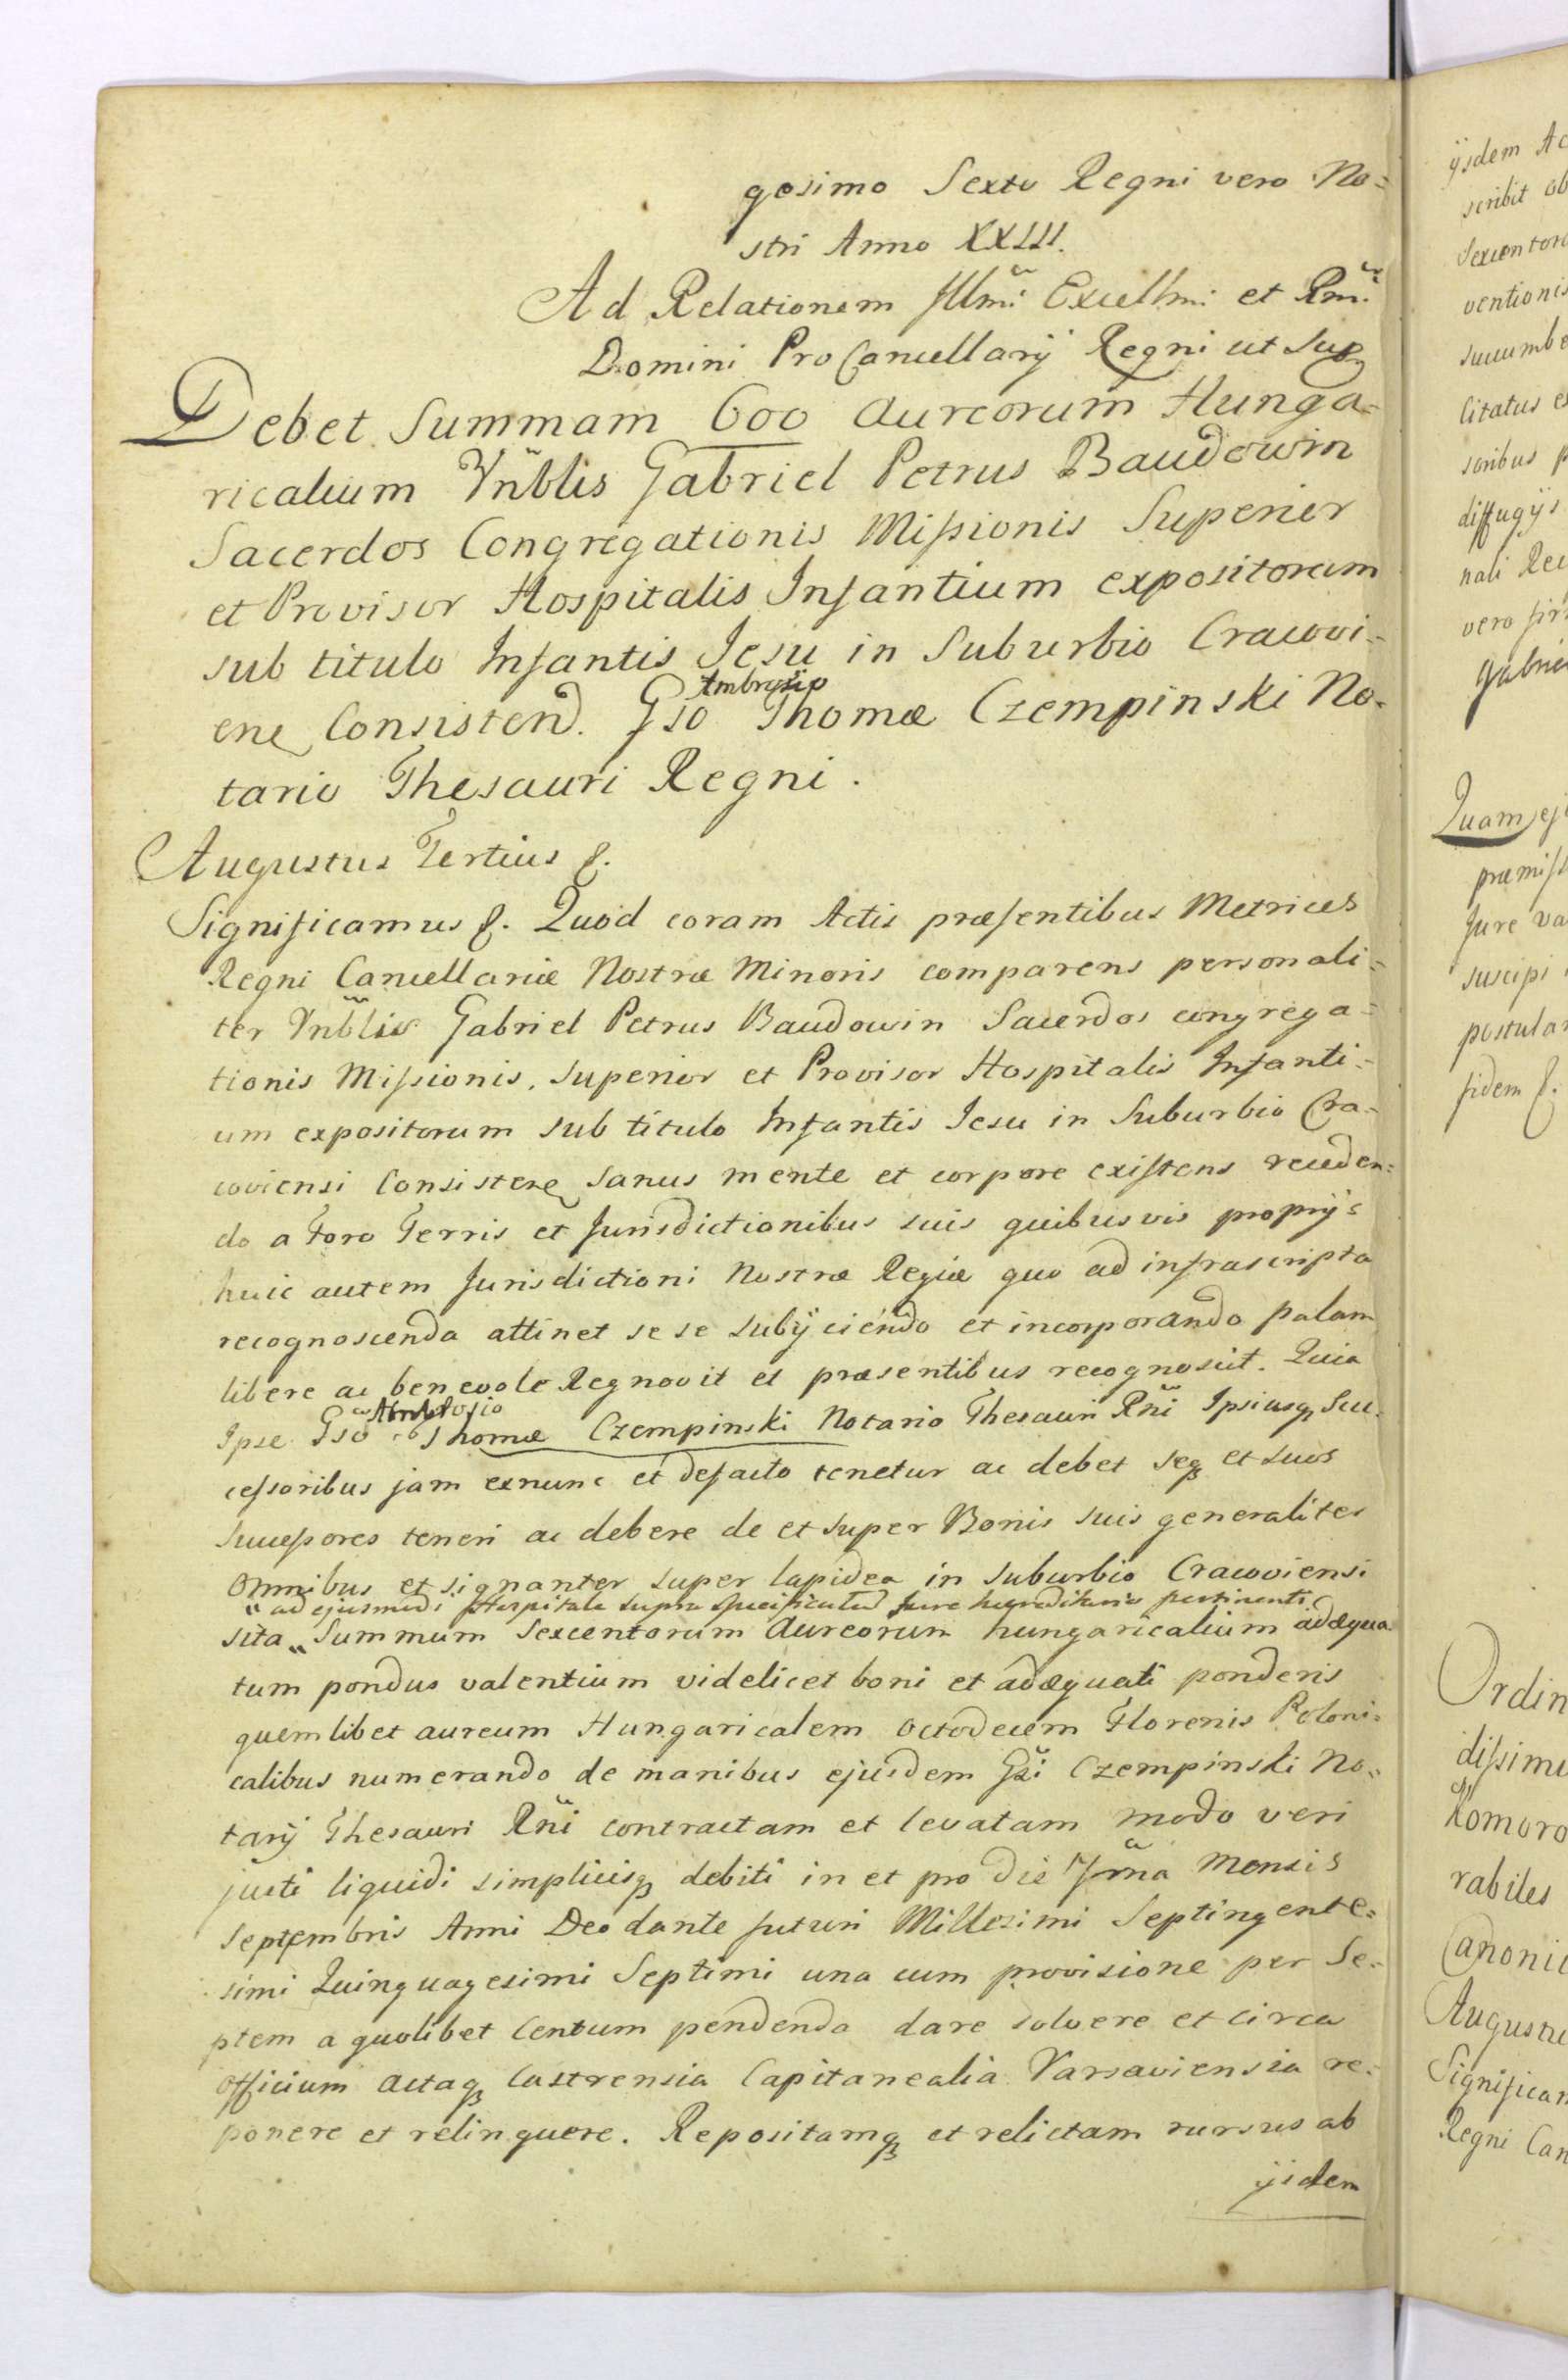 gesimo Sexto Regni vero No=
stri Anno XXIII.
Ad Relationem Illmi Excellmi et Rmi
Domini ProCancellarij Regni ut Sup
Debet Summam 600 Aureorum Hunga=
ricalium Vnblis Gabriel Petrus Baudowin
Sacerdos Congregationis Missionis Superior
et Provisor Hospitalis Infantium expositorum
sub titulo Infantis Jesu in Suburbio Cracovi=
ene Consistend. Gso Ambrosio Thomæ Czempinski No=
tario Thesauri Regni.
Augustus Tertius &.
Significamus &. Quod coram Actis præsentibus Metrices
Regni Cancellariæ Nostræ Minoris comparens personali=
ter Vnblis Gabriel Petrus Baudowin Sacerdos congrega=
tionis Missionis, Superior et Provisor Hospitalis Infanti=
um expositorum sub titulo Infantis Jesu in Suburbio Cra=
coviensi Consistene Sanus mente et corpore existens receden=
do a Foro Terris et Jurisdictionibus suis quibusvis proprijs
huic autem Jurisdictioni Nostræ Regiæ quo ad infrascripta
recognoscenda attinet se se subijciendo et incorporando palam
libere ac benevole Regnovit et præsentibus recognoscit. Quia
Ipse Gso Ambrosio Thomæ Czempinski Notario Thesauri Rni Ipsiusq Suc=
cessoribus jam exnunc et defacto tenetur ac debet seq et suos
Successores teneri ac debere de et super Bonis suis generaliter
Omnibus et signanter super lapidea in suburbio Cracoviensi
" ad ejusmodi Hospitale supra specificatum Jure hæreditario pertinenti
sita " Summam Sexcentorum Aureorum hungaricalium adæqua=
tum pondus valentium videlicet boni et adæquati ponderis
quemlibet aureum Hungaricalem Octodecem Florenis Poloni=
calibus numerando de manibus ejusdem Gsi Czempinski No=
tarij Thesauri Rni contractam et levatam modo veri
justi liquidi simplicisq debiti in et pro die 7ma Mensis
Septembris Anni Deo dante futuri Millesimi Septingente=
simi Quinquagesimi Septimi una cum provisione per Se=
ptem a quolibet Centum pendenda dare solvere et circa
Officium Actaq Castrensia Capitanealia Varsaviensia re=
ponere et relinquere. Repositamq et relictam rursus ab
ijsdem
ijsdem Ac
scribit ob
Sexcentoru
ventionis
succumbe
litatus es
soribus p
diffugijs
nali Rec
vero fir
Gabrie
Quam ej
præmiss
Jure va
suscipi
postular
fidem &.
Ordin
dissimi
Komoro
rabiles
Canonic
Augustu
Significam
Regni Can